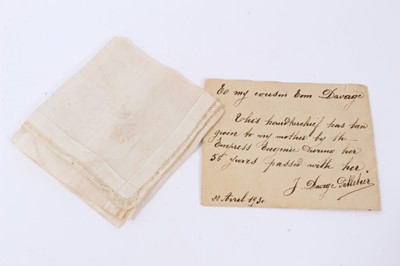 To my cousin Tom Davage
This handkerchief has been
given to my mother by the
Empress Eugenie during her
58 years passed with her.
J. Davage Pelletier
30 Avril 1930